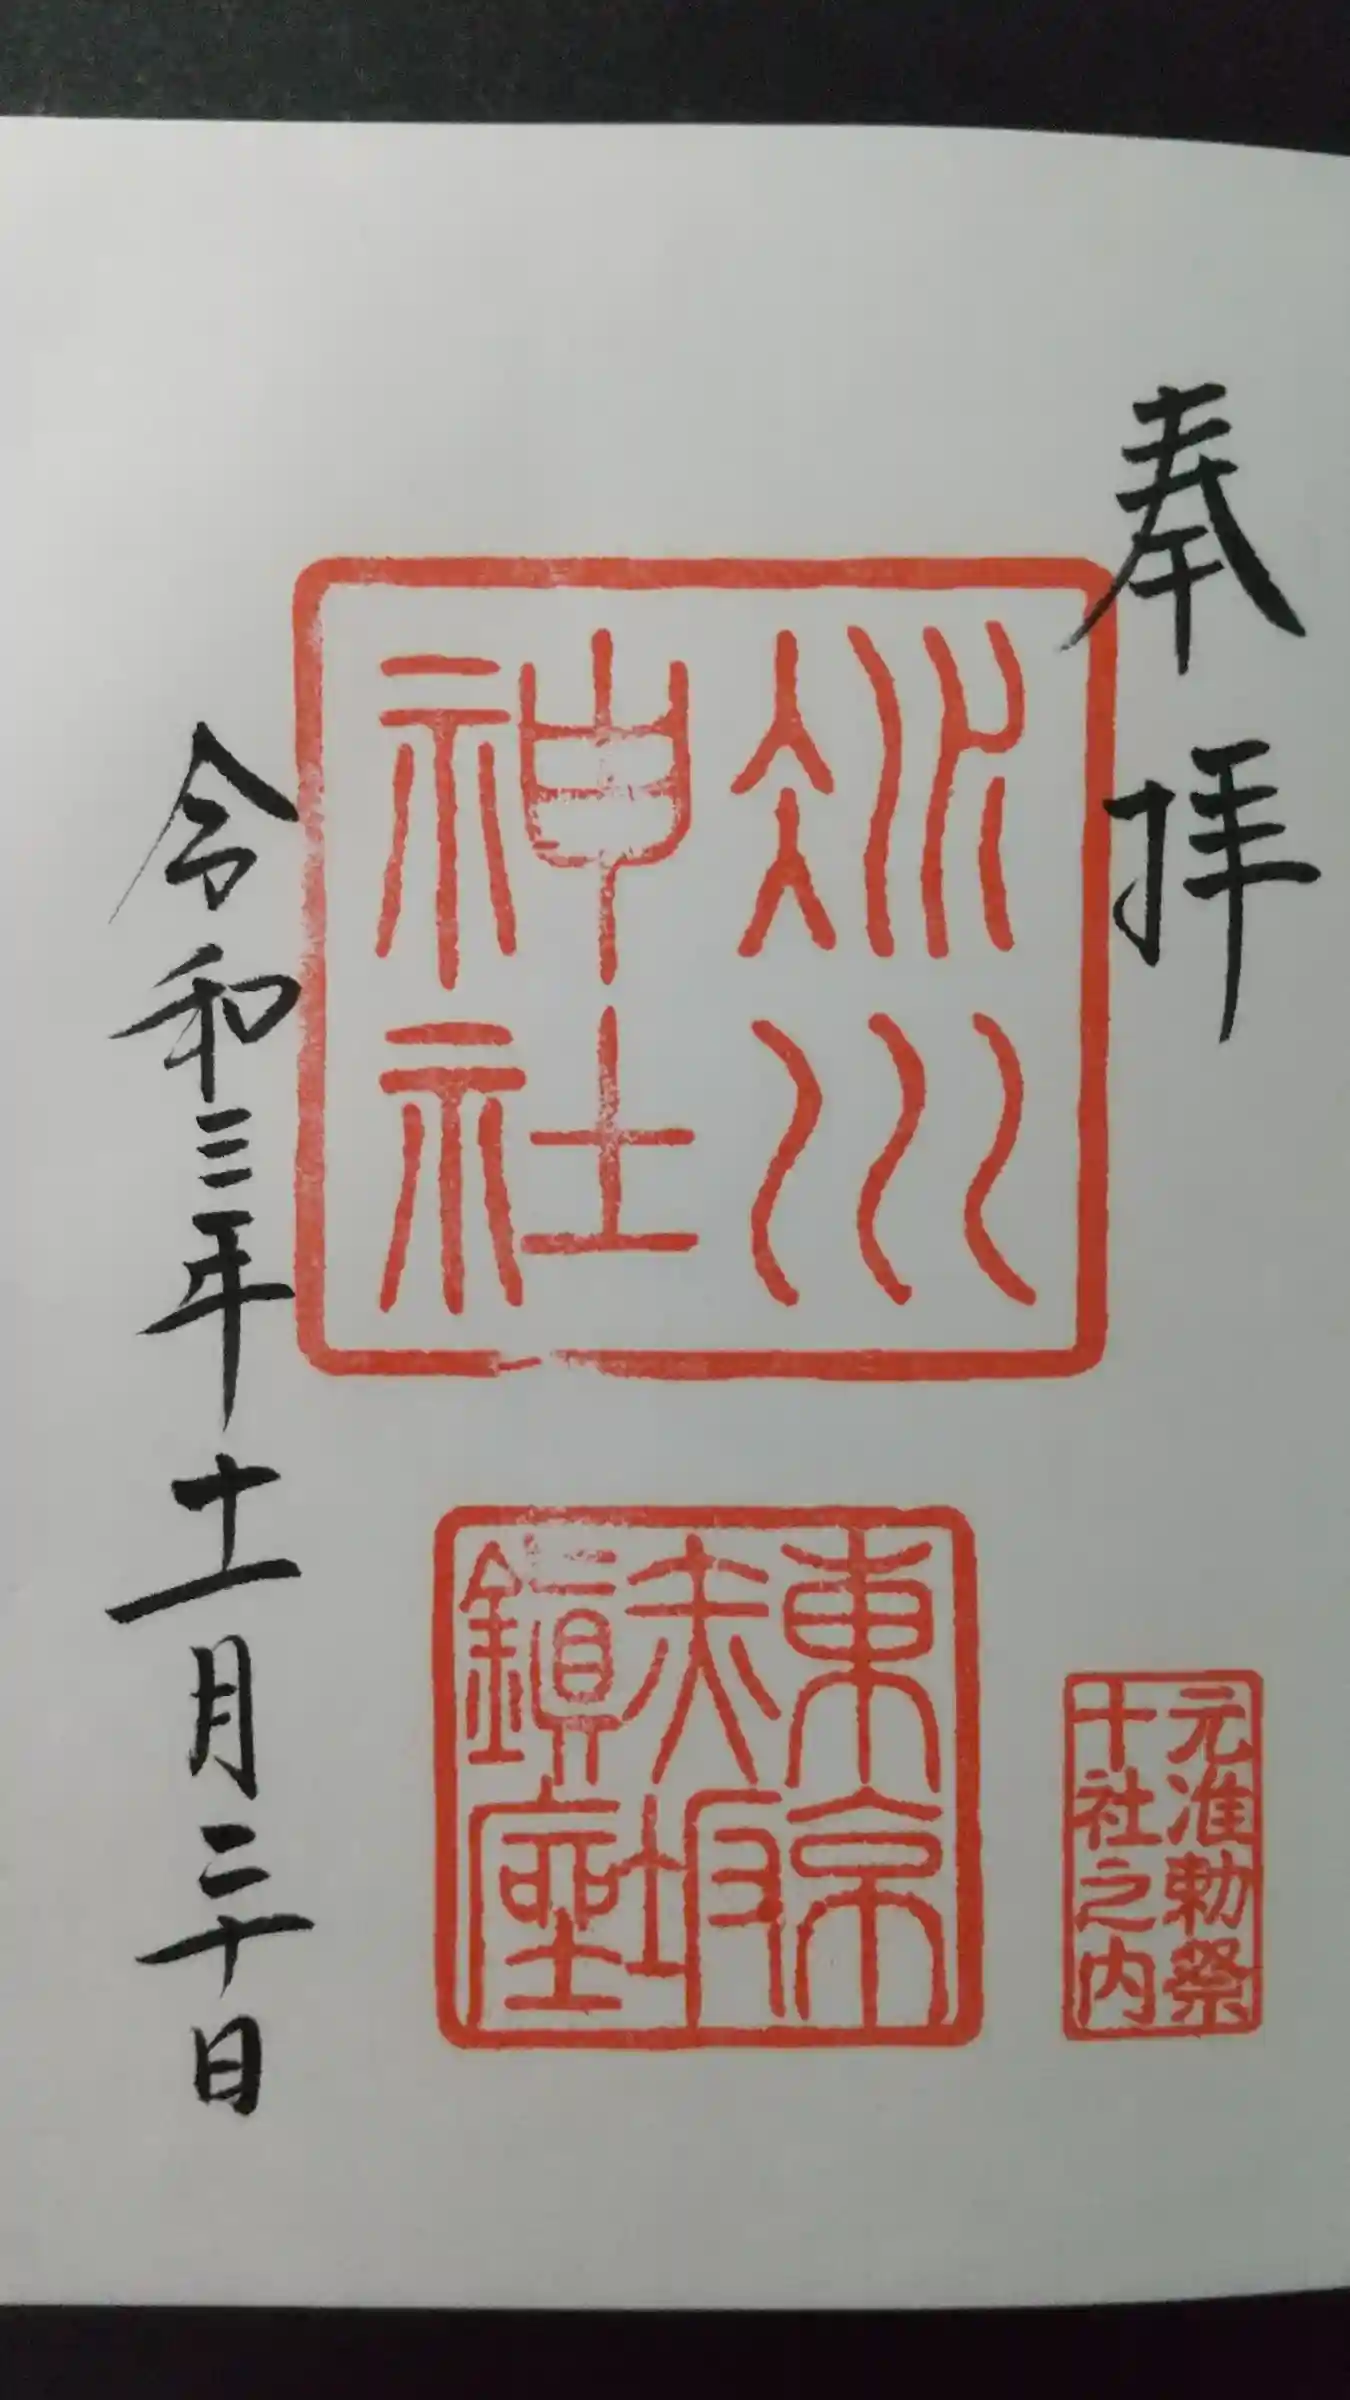 奉拝
元准勅祭
十社之内
氷川
神社
東京
赤坂
鎮座
令和三年十一月二十日